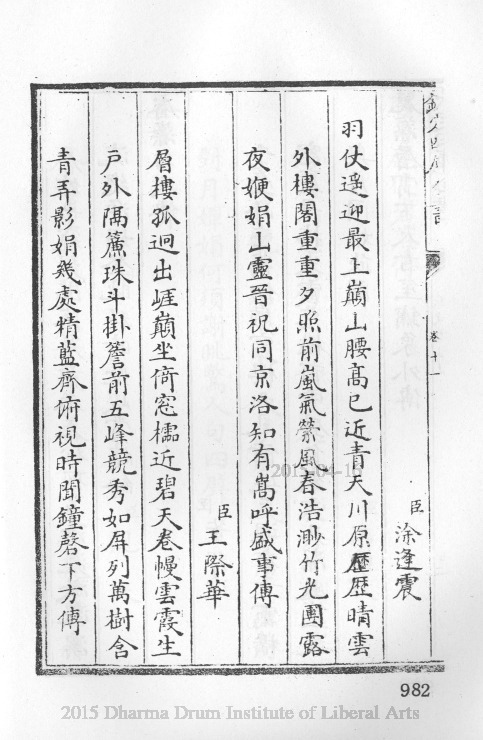 欽定四庫全書
卷十一
臣
涂逢震
羽仗遥迎最上巔山腰髙已近青天川原歴歴晴雲
外樓閣重重夕照前嵐氣縈風春浩渺竹光團露
夜㛹娟山靈晉祝同京洛知有嵩呼盛事傳
臣
王際華
層樓孤迥出崖巔坐倚窓櫺近碧天卷幔雲霞生
户外隔簾珠斗掛簷前五峰競秀如屏列萬樹含
青弄影娟幾處精藍齊俯視時聞鐘磬下方傳
2015-04-16
982
2015 Dharma Drum Institute of Liberal Arts